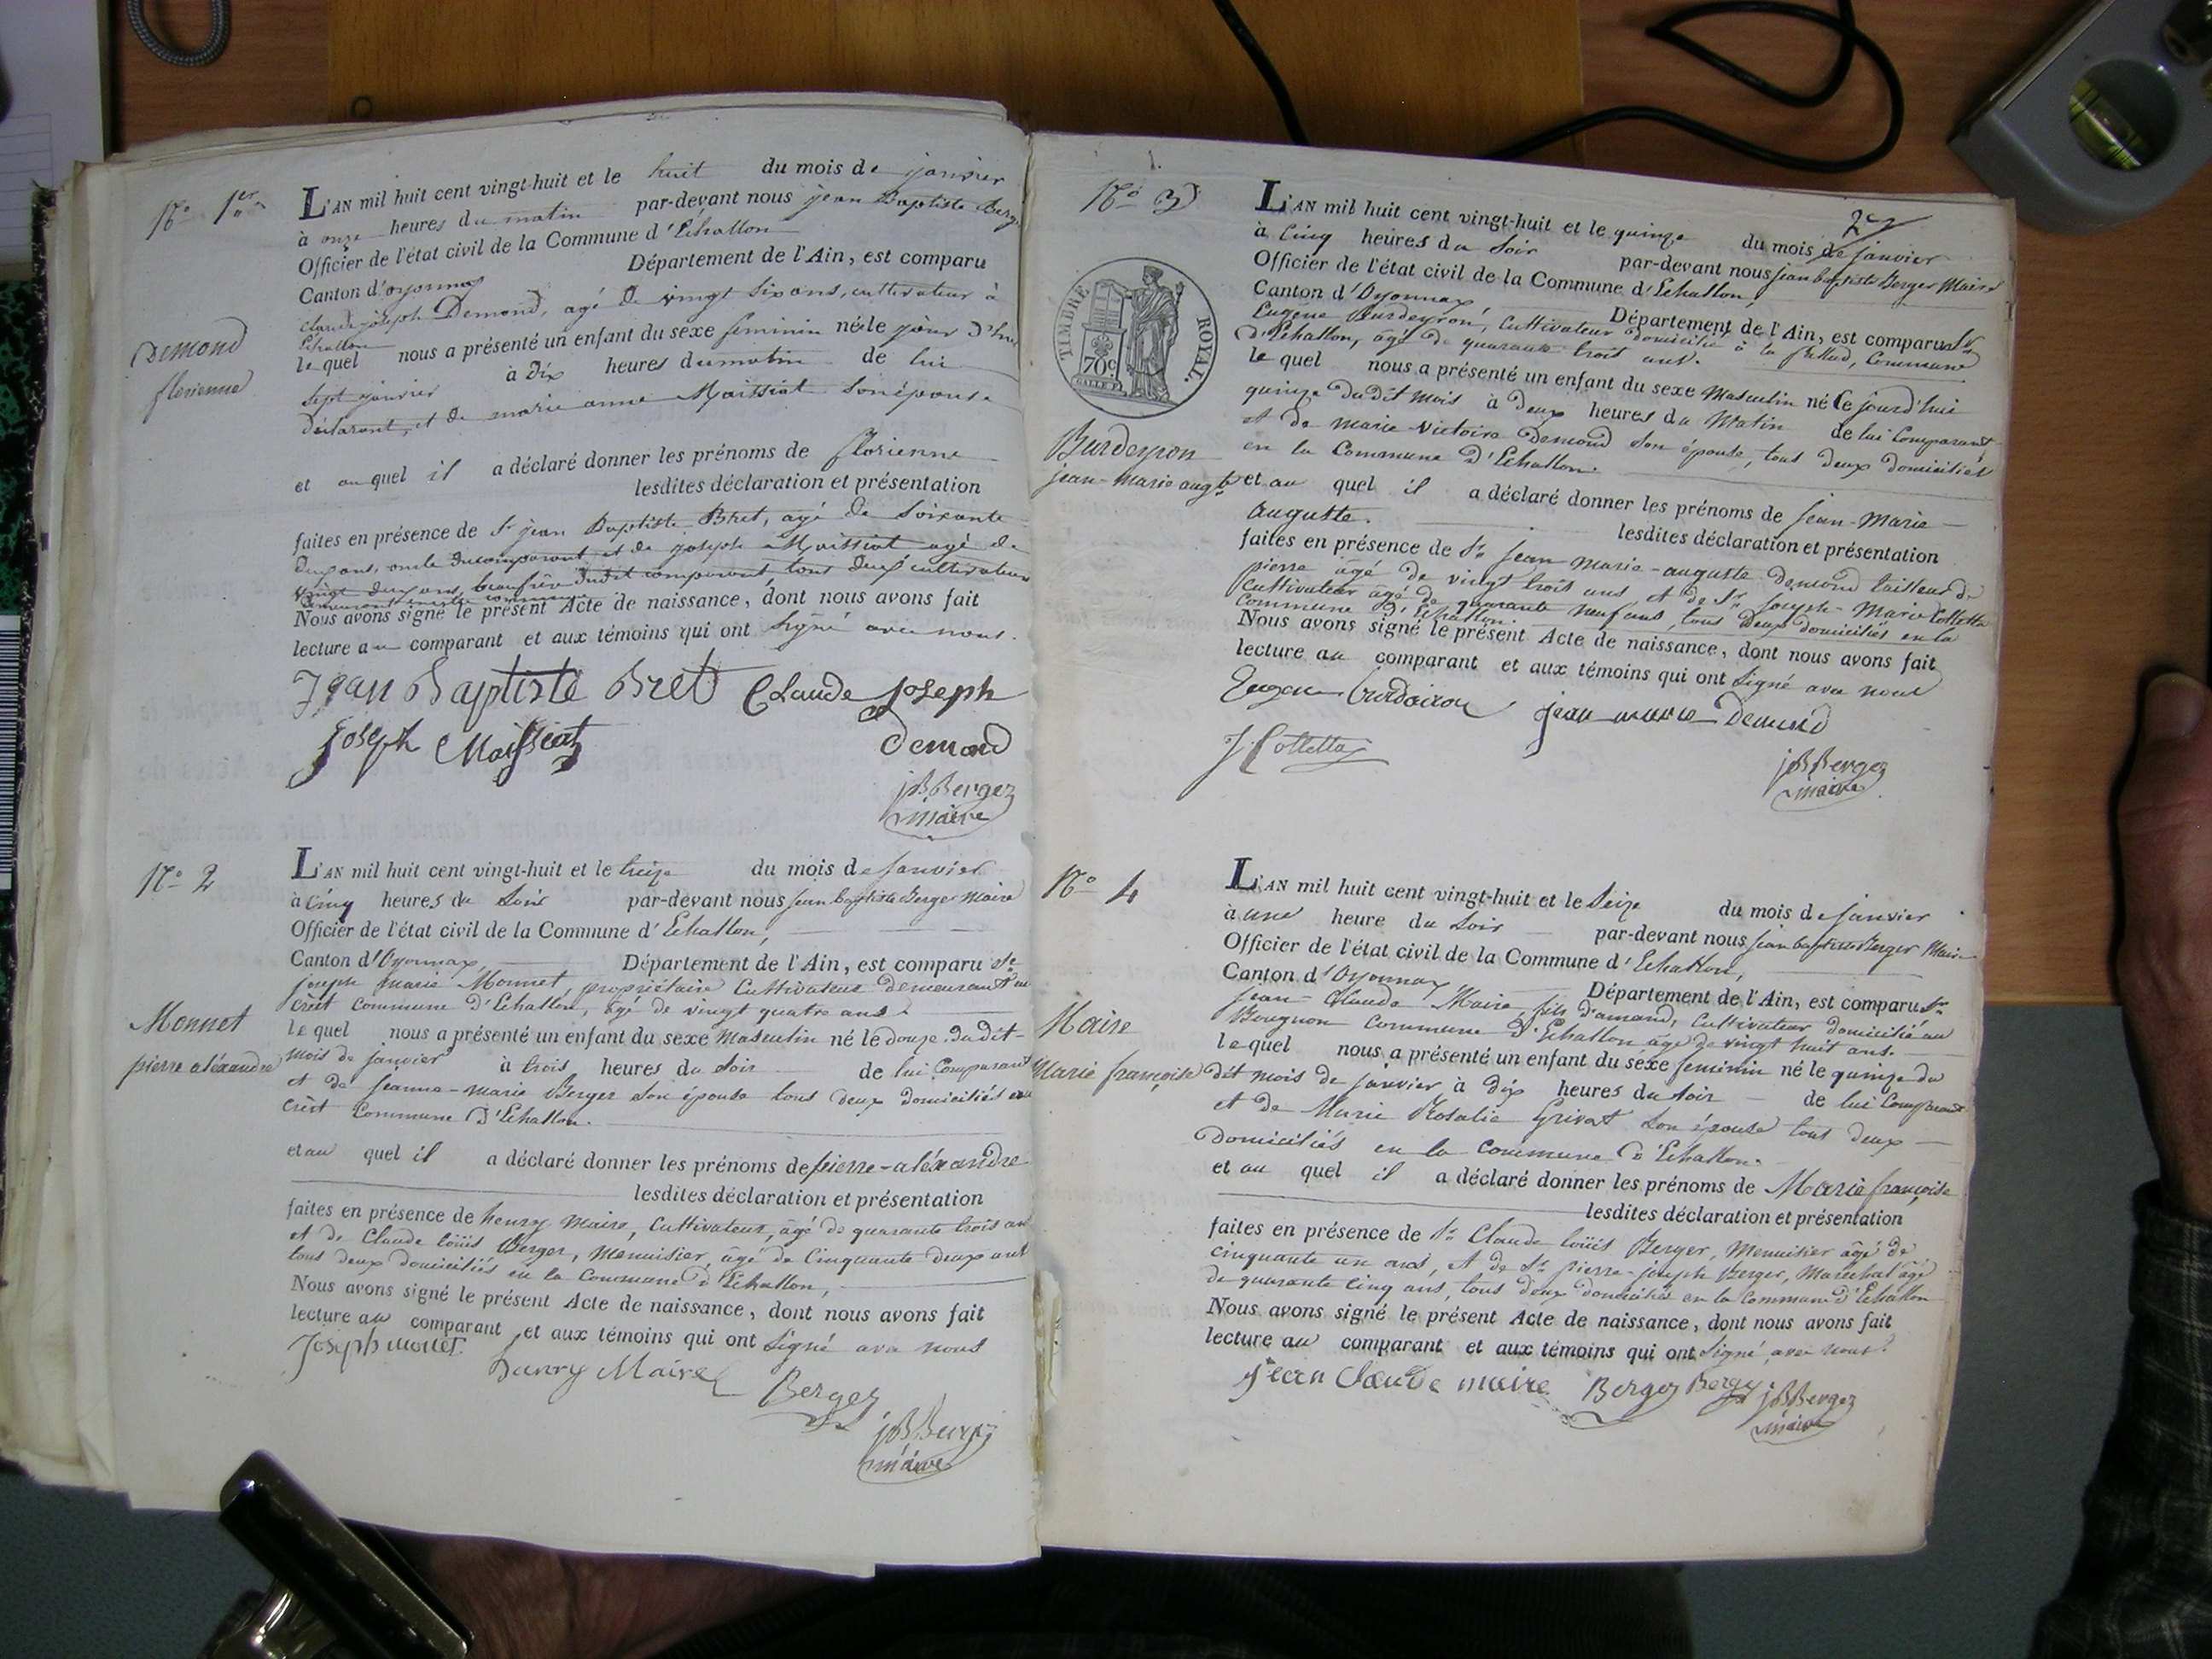 N° 1er
L'AN mil huit cent vingt-huit et le huit du mois de janvier
à onze heures du matin par-devant nous jean Baptiste Berge
Officier de l'état civil de la Commune d'Echallon
Canton d'oyonnax Département de l'Ain, est comparu
Claude joseph Demond, agé de vingt six ans, cultivateur à
Echallon
Demond
florienne
le quel nous a présenté un enfant du sexe feminin née le jour d'hier
sept janvier à dix heures du matin de lui
déclarant, et de marie anne Maissiat son épouse
et au quel il a déclaré donner les prénoms de florienne
lesdites déclaration et présentation
faites en présence de Sr jean Baptiste Bret, agé de soixante
deux ans, oncle du comparant et de joseph Maissiat agé de
vingt deux ans, beaufrère dudit comparant tous deux cultivateurs
demeurant en cette commune
Nous avons signé le présent Acte de naissance, dont nous avons fait
lecture au comparant et aux témoins qui ont signé avec nous.
Jean Baptiste Bret Claude joseph
joseph Maissiat Demond
jB Berger
maire
N° 2
L'AN mil huit cent vingt-huit et le treize du mois de janvier
à cinq heures du soir par-devant nous jean baptiste Berger Maire
Officier de l'état civil de la Commune d'Echallon,
Canton d'Oyonnax, Département de l'Ain, est comparu Sr
joseph marie Monnet, propriétaire Cultivateur demeurant au
crêt commune d'Echallon, âgé de vingt quatre ans.
Monnet
pierre aléxandre
le quel nous a présenté un enfant du sexe Masculin né le douze dudit
mois de janvier à trois heures du soir de lui Comparant
et de jeanne-marie Berger son épouse tous deux domiciliés au
crêt Commune d'Echallon.
et au quel il a déclaré donner les prénoms de pierre-aléxandre
lesdites déclaration et présentation
faites en présence de henry Maire, Cultivateur, âgé de quarante trois ans
et de Claude loüis Berger, Menuisier, âgé de Cinquante deux ans
tous deux domiciliés en la Commune d'Echallon,
Nous avons signé le présent Acte de naissance, dont nous avons fait
lecture au comparant et aux témoins qui ont signé avec nous
Joseph monet henry Maire Berger
jB Berger
maire
2e
N° 3
L'AN mil huit cent vingt-huit et le quinze du mois de janvier
à Cinq heures du Soir par-devant nous jean baptiste Berger Maire
Officier de l'état civil de la Commune d'Echallon,
Canton d'Oyonnax, Département de l'Ain, est comparu Sr
TIMBRE ROYAL.
70c
Eugene Burdeyron, Cultivateur domicilié à la Commune
d'Echallon, âgé de quarante trois ans.
le quel nous a présenté un enfant du sexe Masculin né Ce jourd'hui
quinze dudit mois à deux heures du Matin de lui Comparant
et de marie-victoire Demond son épouse, tous deux domiciliés
en la Commune d'Echallon.
Burdeyron
jean-marie augte
et au quel il a déclaré donner les prénoms de jean-Marie
auguste. lesdites déclaration et présentation
faites en présence de Sr jean Marie-auguste Demond tailleur de
pierre âgé de vingt trois ans et de Sr joseph-Marie Collettaz
cultivateur âgé de quarante neuf ans, tous deux domiciliés en la
commune d'Echallon.
Nous avons signé le présent Acte de naissance, dont nous avons fait
lecture au comparant et aux témoins qui ont Signé avec nous
jean marie Demond
J Collettaz
jB Berger
maire
N° 4
L'AN mil huit cent vingt-huit et le Seize du mois de janvier
à une heure du soir par-devant nous jean baptiste Berger Maire
Officier de l'état civil de la Commune d'Echallon,
Canton d'Oyonnax Département de l'Ain, est comparu Sr
jean-Claude Maire, fils d'amand, cultivateur domicilié au
Bougnon commune d'Echallon âgé de vingt huit ans.
Maire
Marie françoise
le quel nous a présenté un enfant du sexe feminin né le quinze du
dit mois de janvier à dix heures du soir de lui Comparant
et de Marie Rosalie Grivat son épouse tous deux
domiciliés en la Commune d'Echallon.
et au quel il a déclaré donner les prénoms de Marie françoise
lesdites déclaration et présentation
faites en présence de Sr Claude loüis Berger, Menuisier âgé de
cinquante un ans, et de Sr pierre-joseph Berger, Marechal âgé
de quarante cinq ans, tous deux domiciliés en la Commune d'Echallon
Nous avons signé le présent Acte de naissance, dont nous avons fait
lecture au comparant et aux témoins qui ont Signé avec nous.
jean Claude maire Berger Berger jB Berger
maire